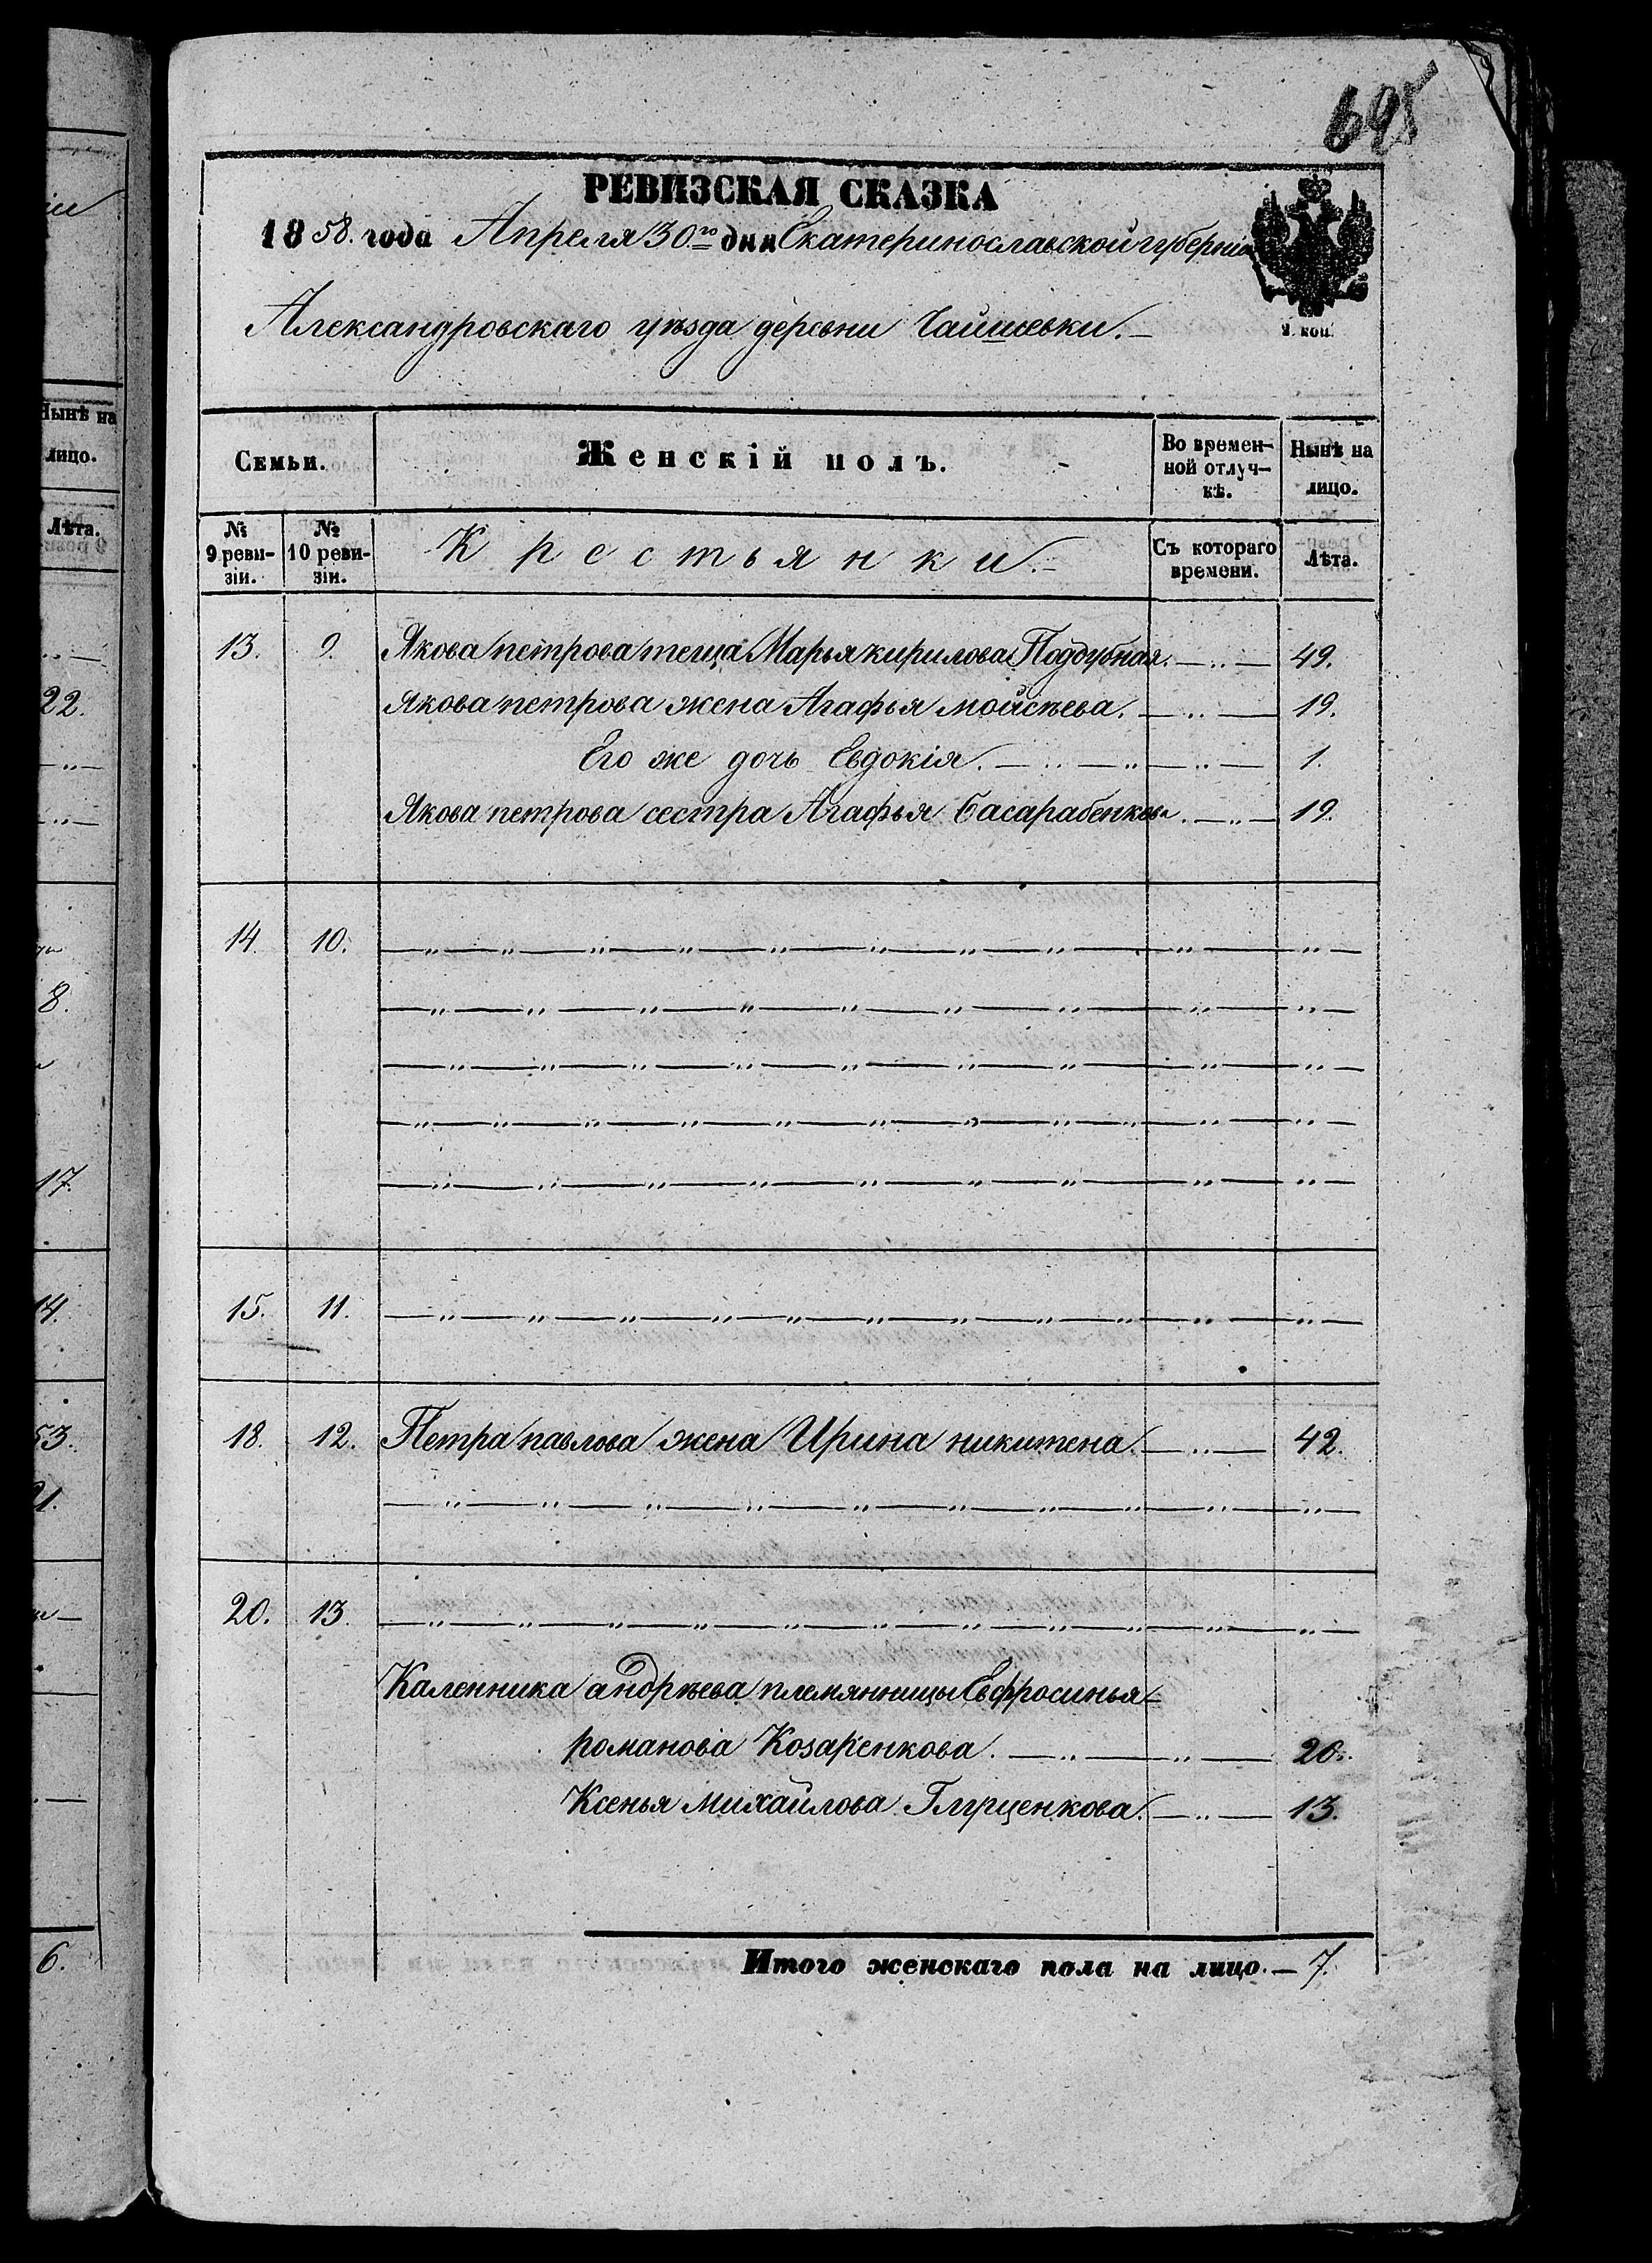 695
РЕВИЗСКАЯ СКАЗКА
1858. года Апреля 30го дня Екатеринославской губерніи
Александровскаго уѣзда деревни
Семьи.
Женскій полъ.
Во времен-
ной отлуч-
кѣ.
Нынѣ на
лицо.
№
9 реви-
зіи.
№
10 реви-
зіи.
Крестьянки.
Съ котораго
времени.
Лѣта.
13. 9. Якова петрова теща Марья кирилова Поддубная. —„— 49.
Якова петрова жена Агафья мойсѣева. —„— 19.
Его же дочь Евдокія. —„—„—„— 1.
Якова петрова сестра Агафья Басарабенкова. —„— 19.
14. 10. —„—„—„—„—„—„—„—„—„—„—
—„—„—„—„—„—„—„—„—„—
—„—„—„—„—„—„—„—„—„—
—„—„—„—„—„—„—„—„—„—„—„—
—„—„—„—„—„—„—„—„—„—
15. 11. —„—„—„—„—„—„—„—„—„—„—„—
18. 12. Петра павлова жена Ирина никитена. —„— 42.
—„—„—„—„—„—„—„—„—„—„—
20. 13. —„—„—„—„—„—„—„—„—„—„—„—
Каленника андрѣева племянницы Евфросинья
романова Козаренкова. —„—„— 20.
Ксенья михайлова Глущенкова. —„— 13.
Итого женскаго пола на лицо. — 7.
Нынѣ на
лицо.
Лѣта.
22.
8.
17.
14.
53.
21.
6.